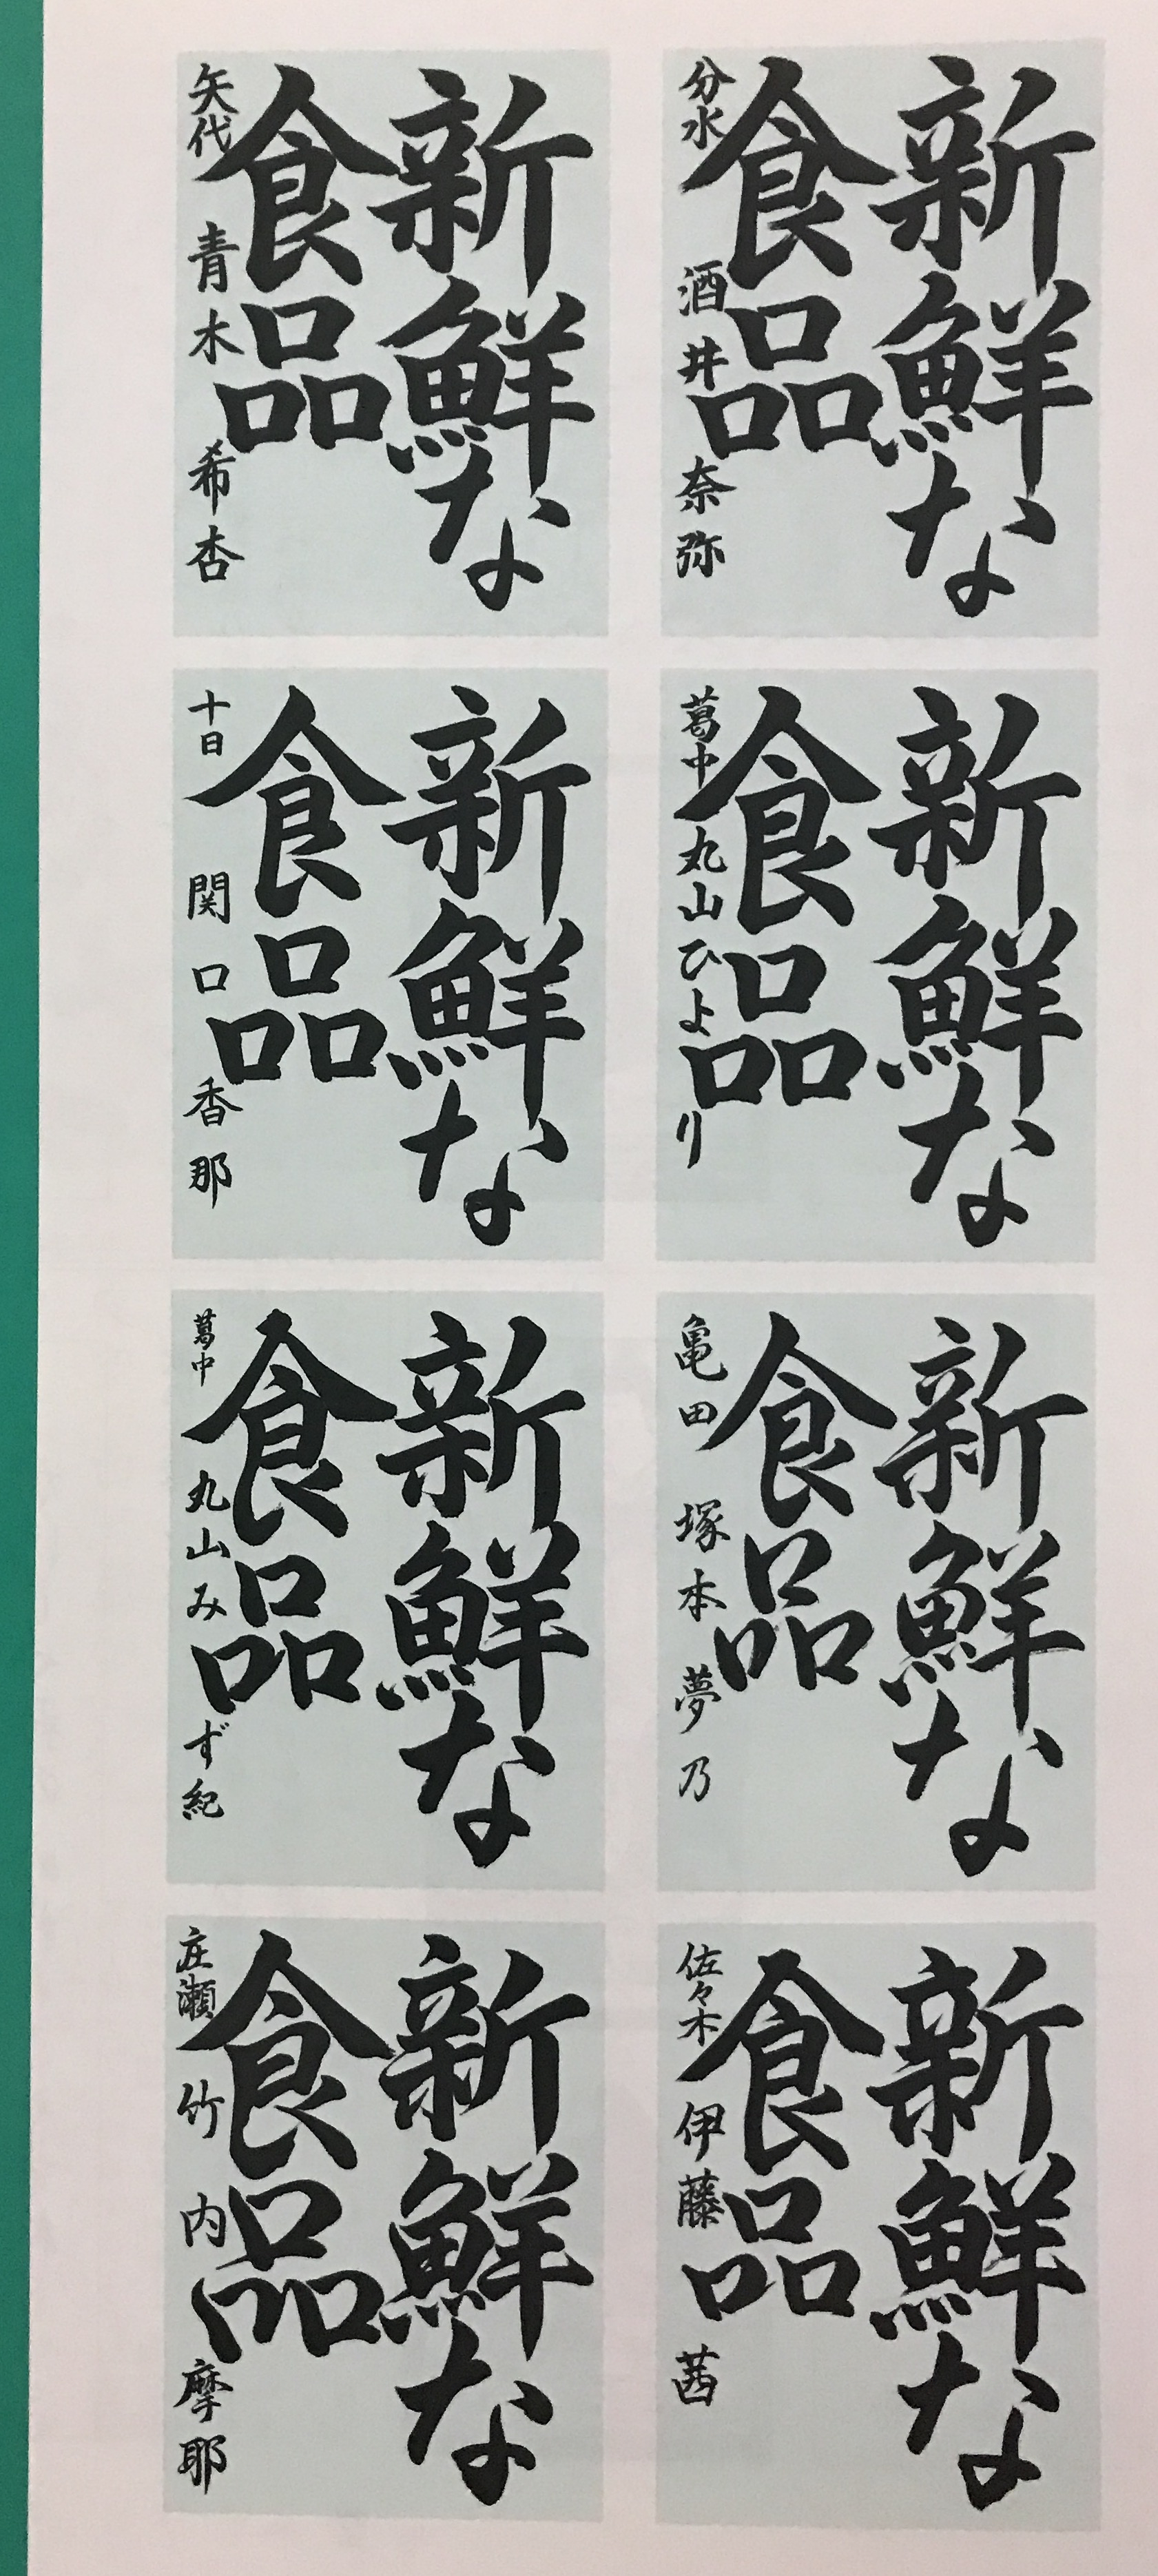 新鮮な
食品
分水 酒井 奈弥
新鮮な
食品
葛中 丸山ひより
新鮮な
食品
亀田 塚本 夢乃
新鮮な
食品
佐々木 伊藤 茜
新鮮な
食品
矢代 青木 希杏
新鮮な
食品
十日 関口 香那
新鮮な
食品
葛中 丸山みず紀
新鮮な
食品
庄瀬 竹内 摩耶